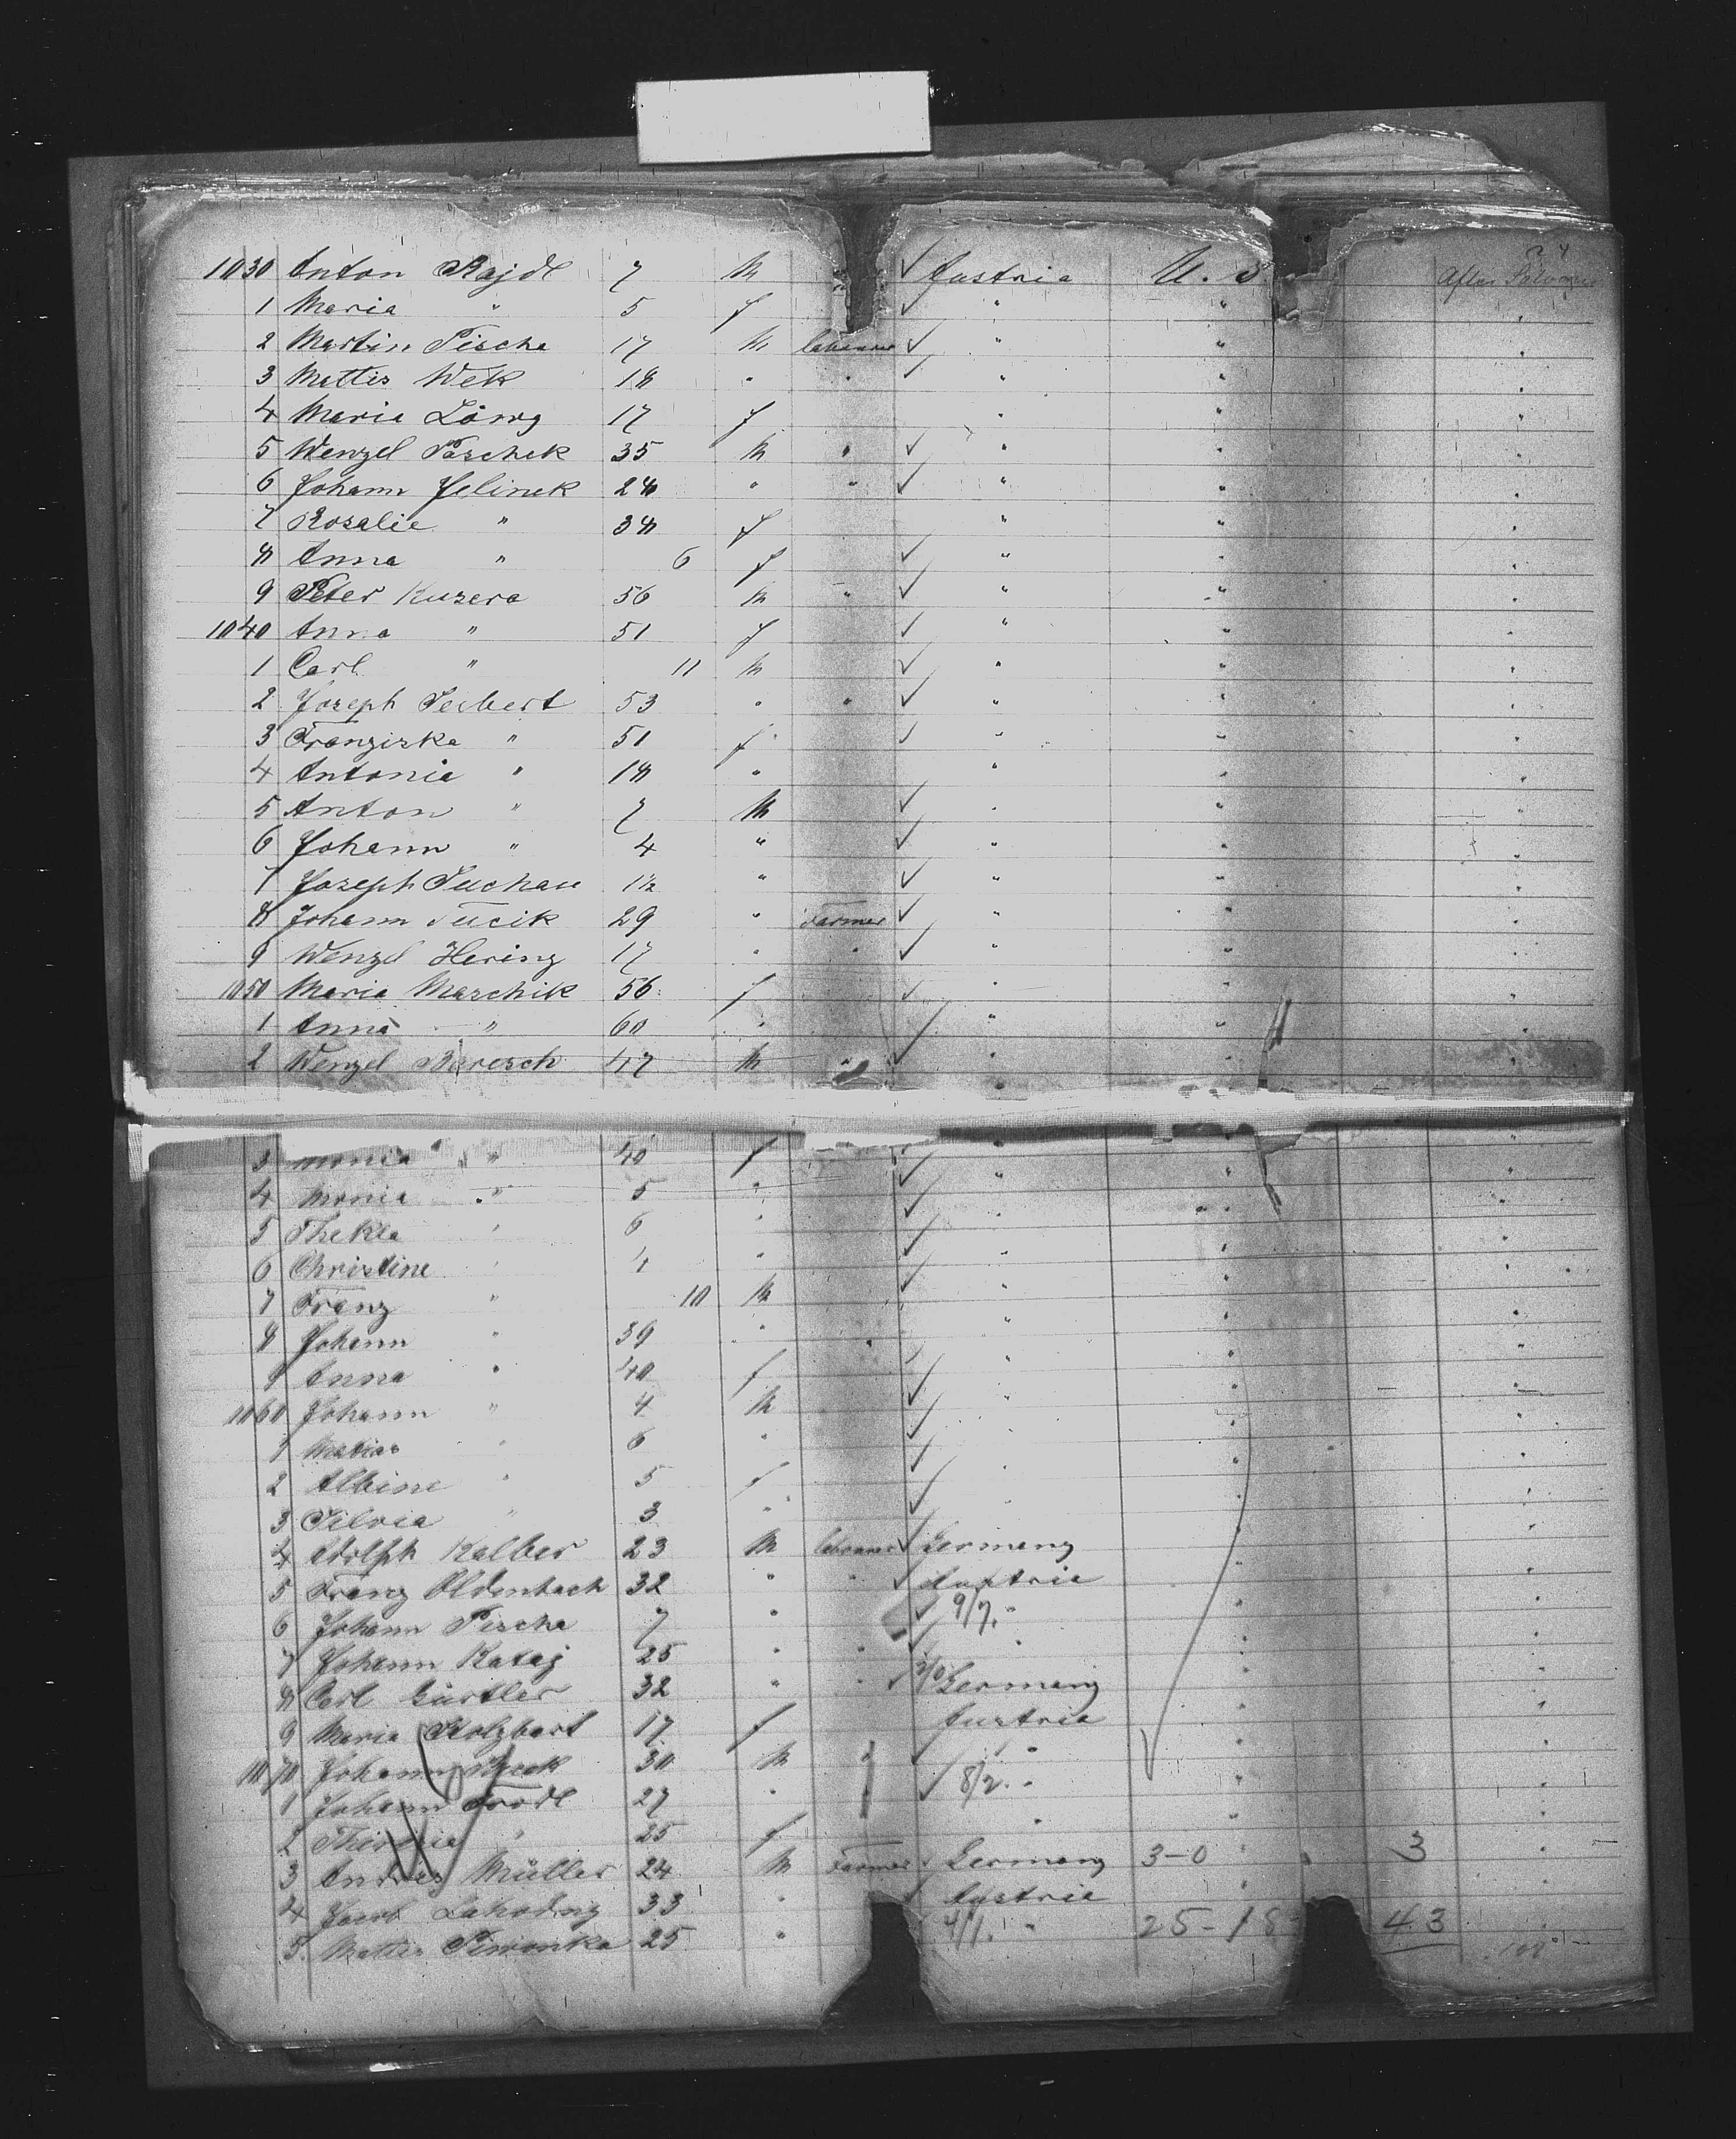 24
1030 Anton Rajdl 7 m ✓ Austria U. S. After
1 Maria " 5 f ✓ " " "
2 Martin Pischa 17 m labourer ✓ " " "
3 Mattis Wek 18 " " ✓ " " "
4 Maria Löwy 17 f " " "
5 Wenzel Paschek 35 m " ✓ " " "
6 Johann Jelinek 28 " " ✓ " " "
7 Rosalie " 38 f " " "
8 Anna " 6 f ✓ " " "
9 Peter Kuzera 56 m " ✓ " " "
1040 Anna " 51 f ✓ " " "
1 Carl " 11 m ✓ " " "
2 Joseph Seibert 53 " " ✓ " " "
3 Franziska " 51 f ✓ " " "
4 Antonia " 18 " " " "
5 Anton " 7 m ✓ " " "
6 Johann " 4 " ✓ " " "
7 Joseph Suchau 1½ " ✓ " " "
8 Johann Tucik 29 " Farmer ✓ " " "
9 Wenzel Hering 17 " " ✓ " " "
1050 Maria Maschik 56 f ✓ " " "
1 Anna " 60 " ✓ " " "
2 Wenzel Baresch 47 m " ✓ " " "
3 Maria " 40 f ✓ " " "
4 Maria " 5 " ✓ " " "
5 Thekla " 6 " ✓ " " "
6 Christine " 4 " ✓ " " "
7 Franz " 10 m ✓ " " "
8 Johann " 39 " " " " "
9 Anna " 40 f ✓ " " "
1060 Johann " 4 m ✓ " " "
1 Matias " 6 " ✓ " " "
2 Albine " 5 f ✓ " " "
3 Silvia " 3 " ✓ " " "
4 Adolph Kalber 23 m labourer ✓ Germany " "
5 Franz Oldenbach 32 " " ✓ Austria " "
6 Johann Pischa 7 " ✓ 9/7. " " "
7 Johann Kataj 25 " " ✓ " " "
8 Carl Gürtler 32 " " ✓ Germany " "
9 Maria Stolzbart 17 f Austria " "
1070 Johann 30 m " ✓ " " "
1 Johann Trödl 27 " " ✓ 8/2. " " "
2 Theresia " 25 f " " "
3 Andreas Müller 24 m Farmer ✓ Germany 3-0 " 3 "
4 Jacob Lahodny 33 " Austria " "
5 Mattis Simonka 25 " 4/1. " 25-18 43 "